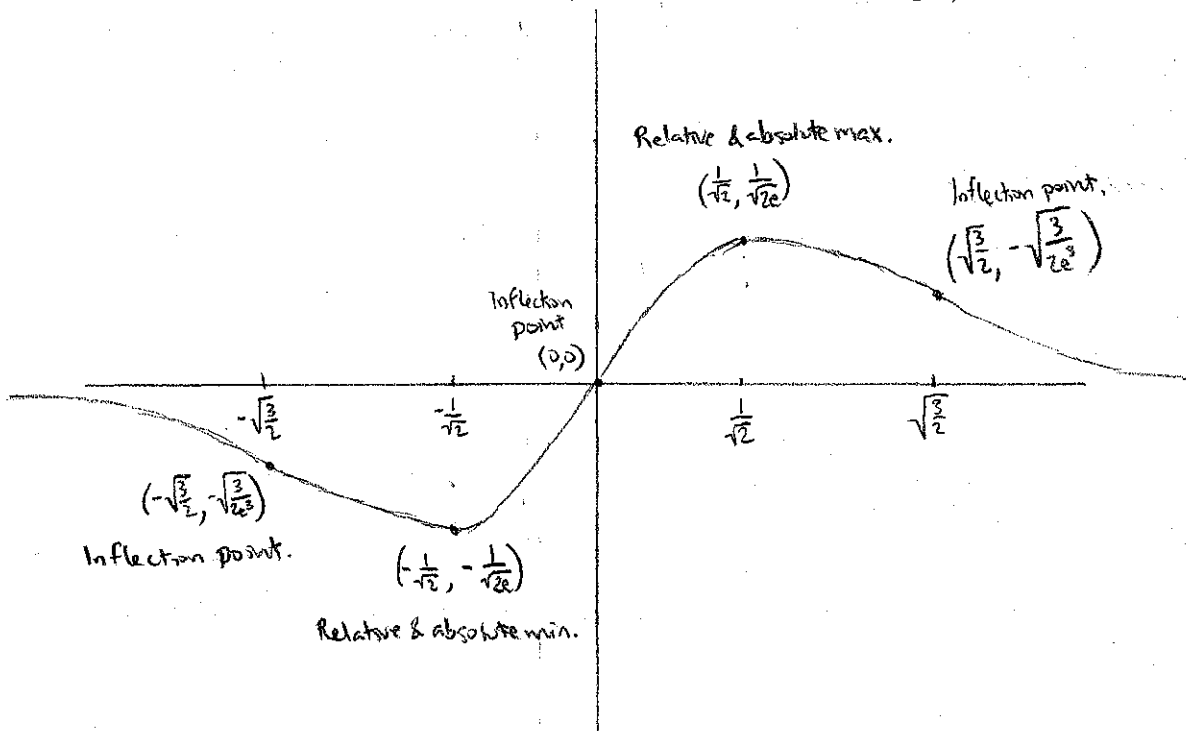 Relative & absolute max.
(1/√2, 1/√2e)
Inflection point.
(√3/2, -√3/2e³)
Inflection
point
(0,0)
-√3/2
-1/√2
1/√2
√3/2
(-√3/2, -√3/2e³)
Inflection point.
(-1/√2, -1/√2e)
Relative & absolute min.